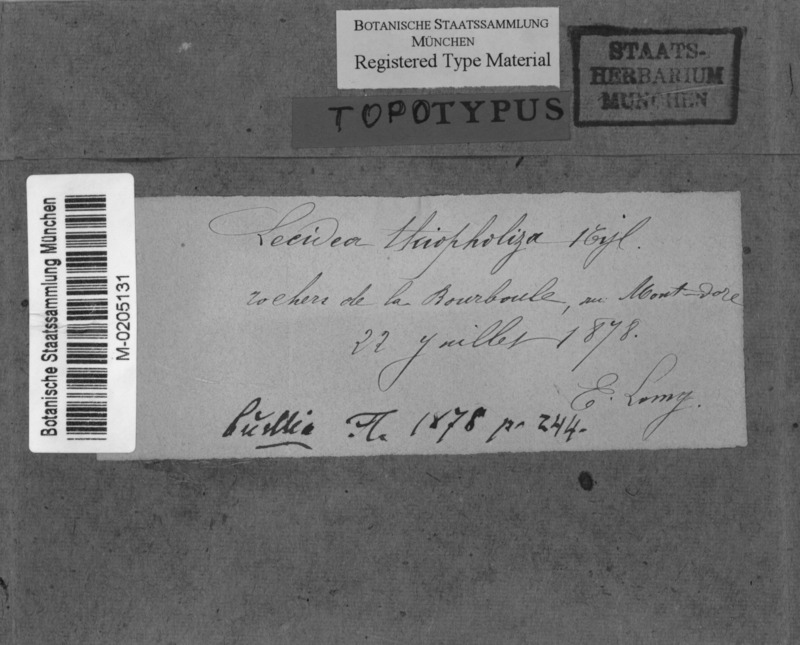 BOTANISCHE STAATSSAMMLUNG
MÜNCHEN
Registered Type Material
STAATS-
HERBARIUM
MÜNCHEN
TOPOTYPUS
Botanische Staatssammlung München
M-0205131
Lecidea thiopholiza Nyl.
rochers de la Bourboule, au Mont-Dore
22 Juillet 1878.
E. Lamy.
Buellia Fl. 1878 p. 244.